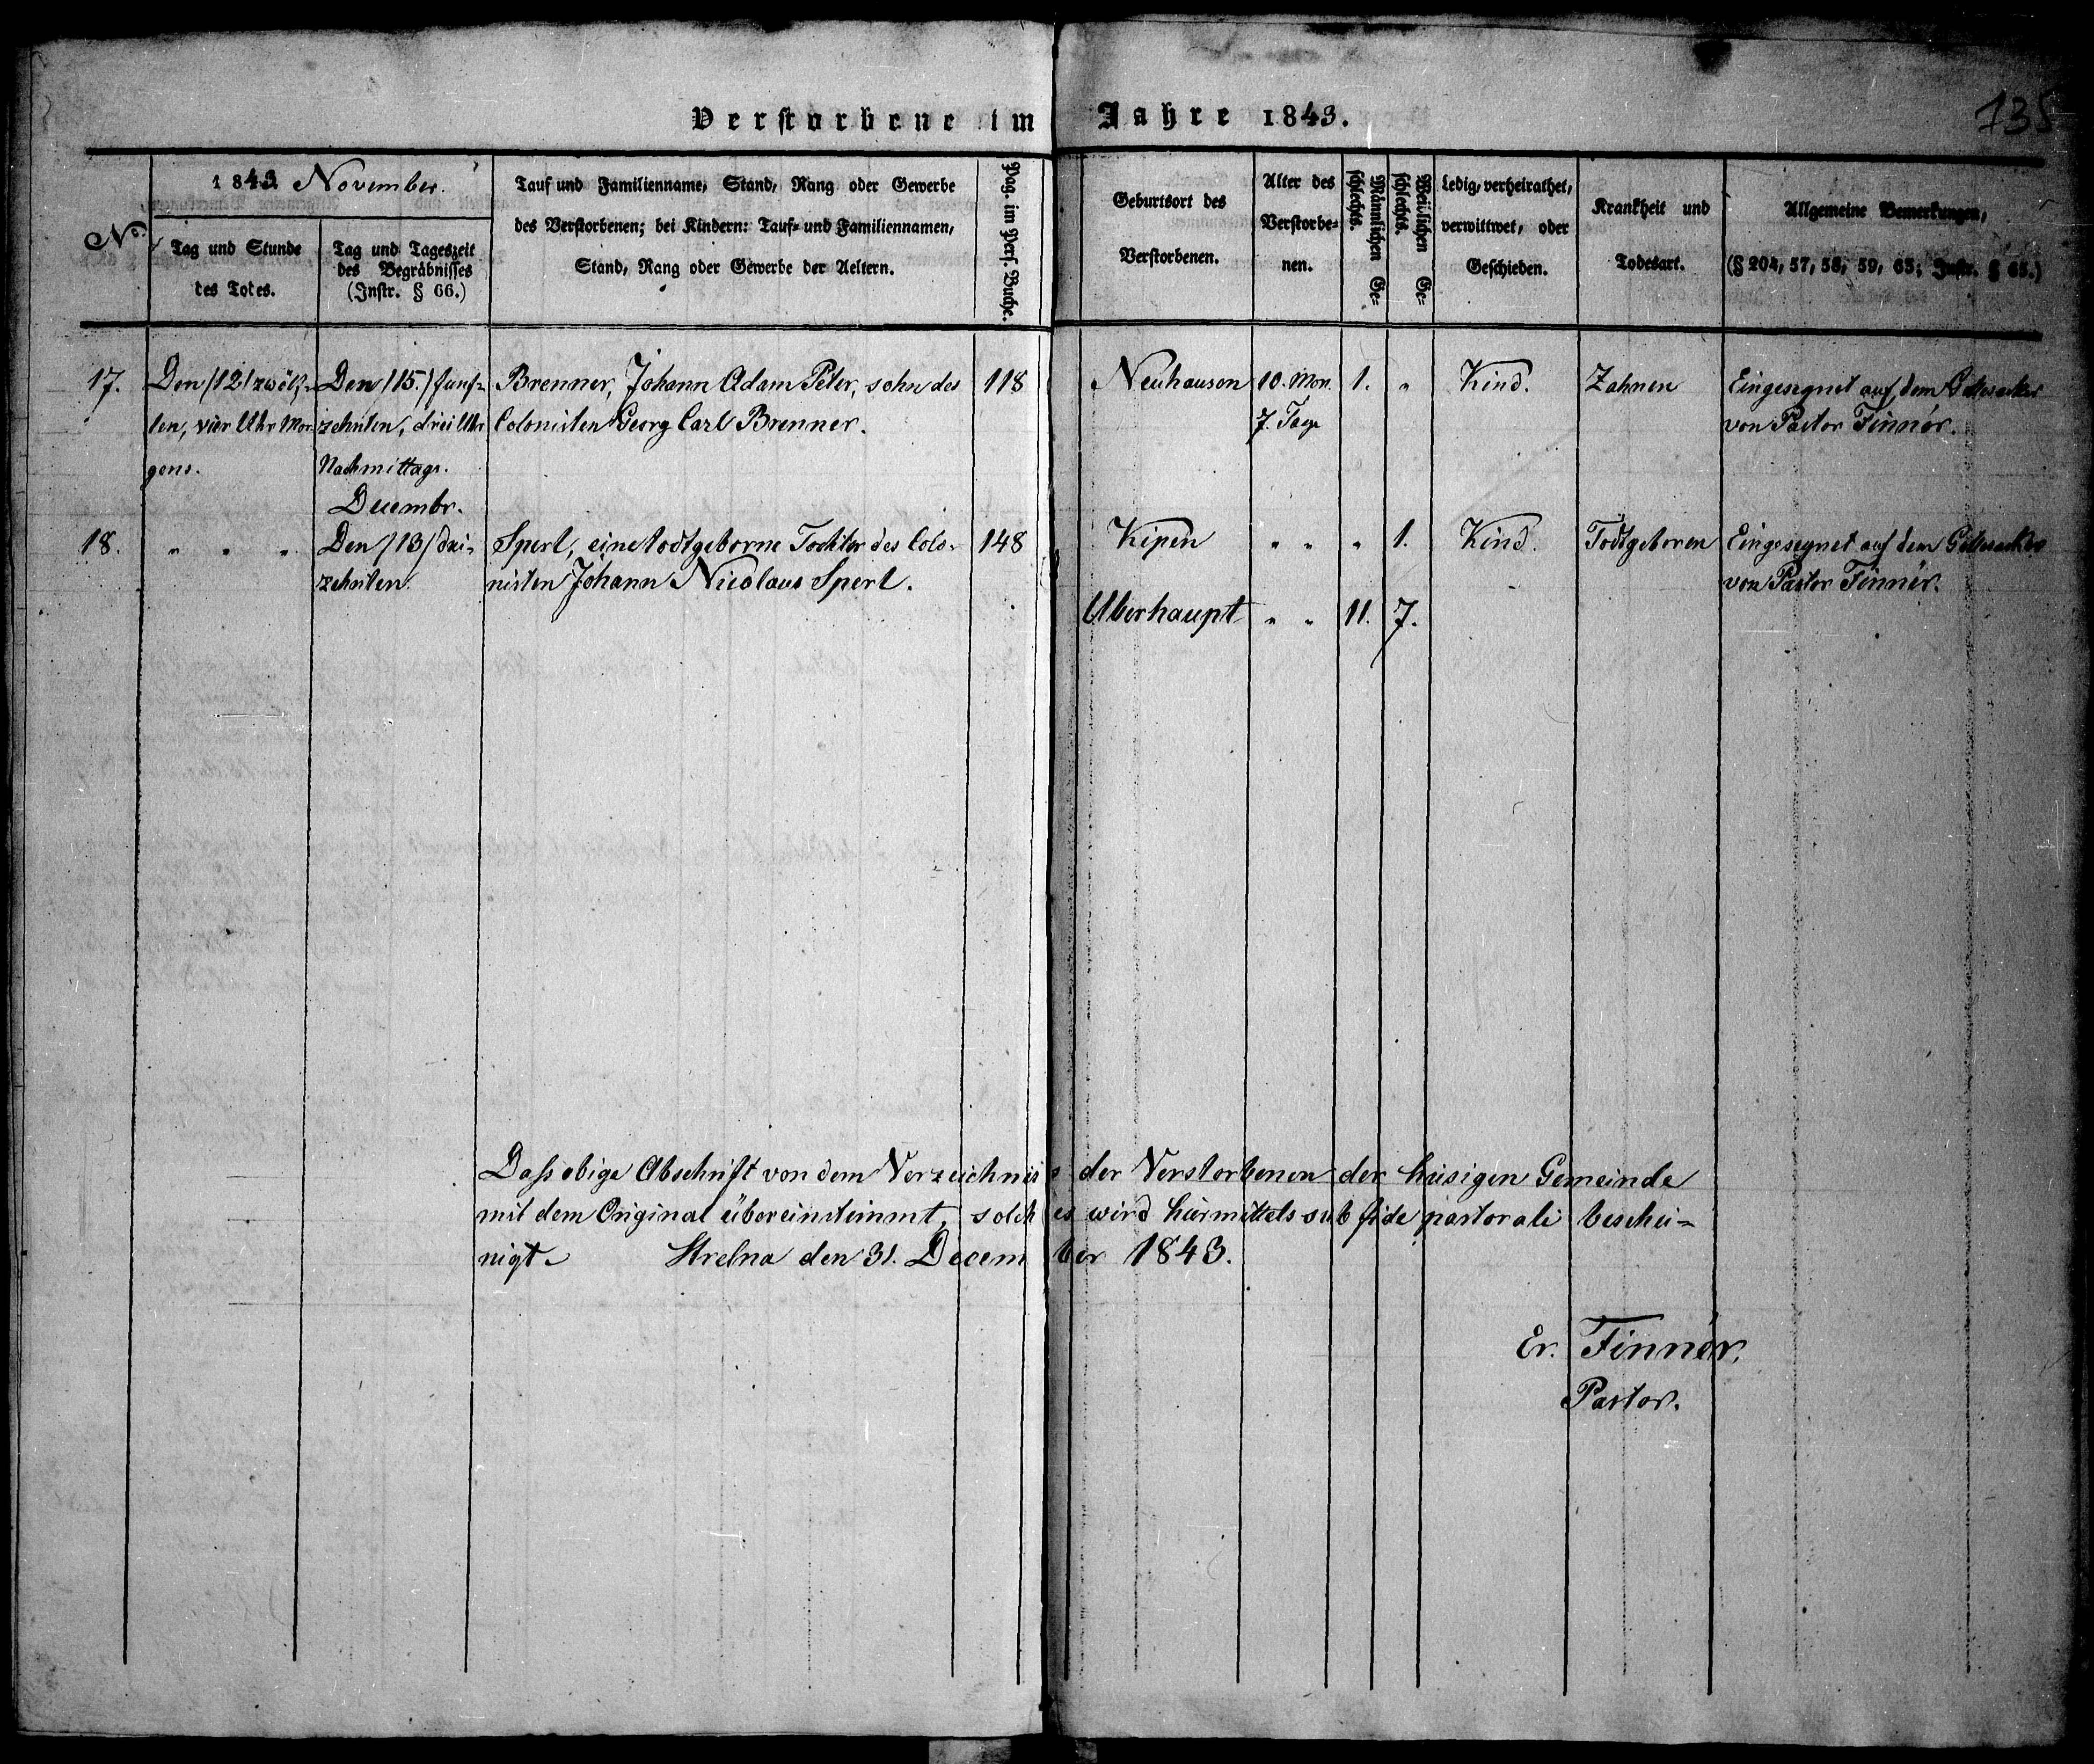 Verstorbene im Jahre 1843.
135
No.
1843 November.
Tag und Stunde
des Todes.
Tag und Tageszeit
des Begräbnisses
(Instr. § 66.)
Tauf und Familienname, Stand, Rang oder Gewerbe
des Verstorbenen; bei Kindern: Tauf- und Familiennamen,
Stand, Rang oder Gewerbe der Aeltern.
Pag. im Pers. Buche.
Geburtsort des
Verstorbenen.
Alter des
Verstorbe-
nen.
Männlichen Ge-
schlechts.
Weiblichen Ge-
schlechts.
Ledig, verheirathet,
verwittwet, oder
Geschieden.
Krankheit und
Todesart.
Allgemeine Bemerkungen,
(§ 204, 57, 58, 59, 63; Instr. § 65.)
17.
Den /12/ zwölf-
ten, vier Uhr Mor-
gens.
Den /15./ funf-
zehnten, drei Uhr
Nachmittags.
Brenner, Johann Adam Peter, sohn des
Colonisten Georg Carl Brenner.
118
Neuhauson
10. Mon.
7. Tage
1.
"
Kind.
Zahnen
Eingesegnet auf dem Gottesacker
von Pastor Finnér.
Decembr.
18.
" " "
Den /13/ drei-
zehnten.
Sperl, eine todtgeborne Tochter des Colo-
nisten Johann Nicolaus Sperl.
148
Kipen
" "
"
1.
Kind.
Todtgeboren
Eingesegnet auf dem Gottesacker
von Pastor Finnér.
Uberhaupt " " 11. 7.
Dass obige Abschrift von dem Verzeichniss der Verstorbenen der hiesigen Gemeinde
mit dem Original übereinstimmt, solches wird hiermittels sub fide pastorali beschei-
nigt. Strelna den 31. December 1843.
Er. Finnér,
Pastor.